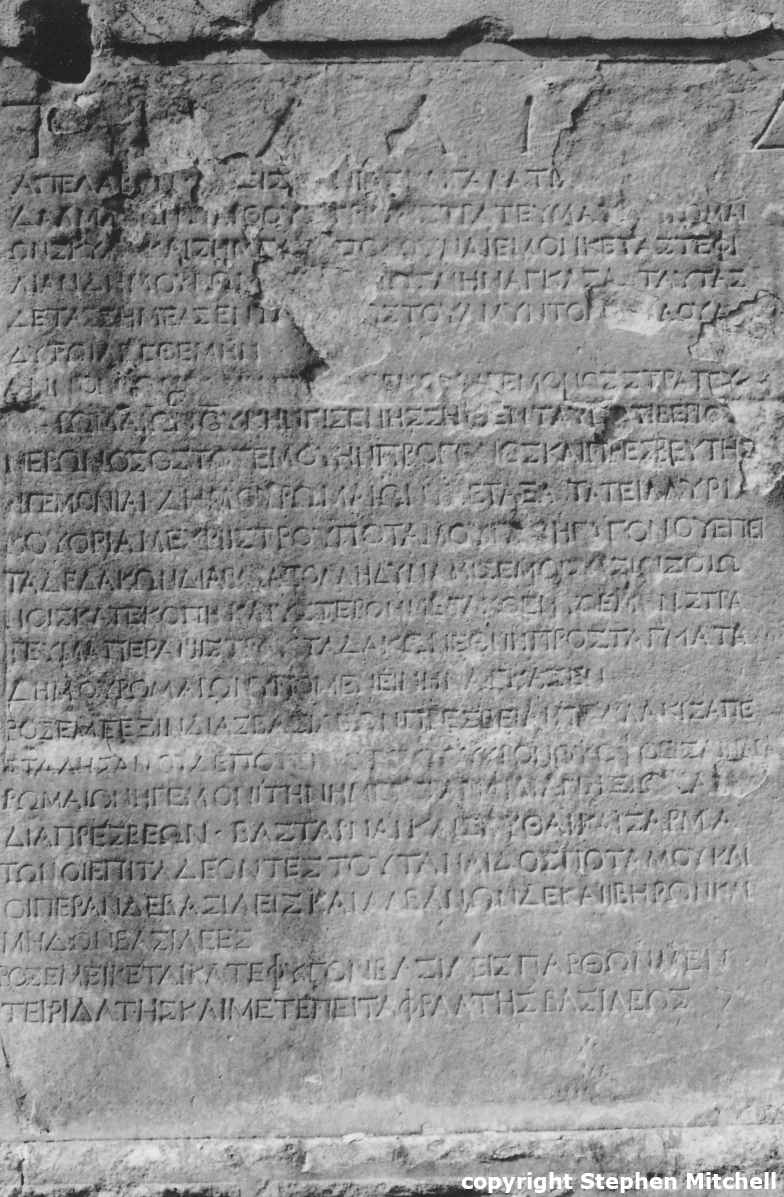 ΑΠΕΛΑΒΟΝ ΓΑΛΑΤΙ
ΔΑΛΜΑΤΩΝ ΠΑΡΘΟΥΣ ΤΡΙΩΝ ΣΤΡΑΤΕΥΜΑΤΩΝ ΡΩΜΑΙ
ΩΝ ΣΚΥΛΑ ΚΑΙ ΣΗΜΕΑΣ ΑΠΟΔΟΥΝΑΙ ΕΜΟΙ ΙΚΕΤΑΣ ΤΕ ΦΙ
ΛΙΑΝ ΔΗΜΟΥ ΩΣΑΙ ΗΝΑΓΚΑΣΑ ΤΑΥΤΑΣ
ΔΕ ΤΑΣ ΣΗΜΕΑΣ ΕΝ ΤΩ ΤΟΥ ΑΜΥΝΤΟΡΟΣ ΝΑΟΥ Α
ΔΥΤΩΙ ΑΠΕΘΕΜΗΝ
ΗΓΕΜΟΝΟΣ ΣΤΡΑΤΕΥ
ΡΩΜΑΙΩΝ ΟΥΚ ΗΝΓΙΣΕΝ ΗΣΣΗΘΕΝΤΑ ΥΠΟ ΤΙΒΕΡΙΟΥ
ΝΕΡΩΝΟΣ ΟΣ ΤΟΤΕ ΜΟΥ ΗΝ ΠΡΟΓΟΝΟΣ ΚΑΙ ΠΡΕΣΒΕΥΤΗΣ
ΗΓΕΜΟΝΙΑΙ ΔΗΜΟΥ ΡΩΜΑΙΩΝ ΥΠΕΤΑΞΑ ΤΑ ΤΕ ΙΛΛΥΡΙ
ΚΟΥ ΟΡΙΑ ΜΕΧΡΙ ΙΣΤΡΟΥ ΠΟΤΑΜΟΥ ΠΡΟΗΓΑΓΟΝ ΟΥ ΕΠΕΙ
ΤΑ ΔΕ ΔΑΚΩΝ ΔΙΑΒΑΣΑ ΠΟΛΛΗ ΔΥΝΑΜΙΣ ΕΜΟΙΣ ΑΙΣΙΟΙΣ ΟΙΩ
ΝΟΙΣ ΚΑΤΕΚΟΠΗ ΚΑΙ ΥΣΤΕΡΟΝ ΜΕΤΑΧΘΕΝ ΤΟ ΕΜΟΝ ΣΤΡΑ
ΤΕΥΜΑ ΠΕΡΑΝ ΙΣΤΡΟΥ ΤΑ ΔΑΚΩΝ ΕΘΝΗ ΠΡΟΣΤΑΓΜΑΤΑ
ΔΗΜΟΥ ΡΩΜΑΙΩΝ ΥΠΟΜΕΝΕΙΝ ΗΝΑΓΚΑΣΕΝ
ΡΟΣ ΕΜΕ ΕΞ ΙΝΔΙΑΣ ΒΑΣΙΛΕΩΝ ΠΡΕΣΒΕΙΑΙ ΠΟΛΛΑΚΙΣ ΑΠΕ
ΣΤΑΛΗΣΑΝ ΟΥΔΕΠΟΤΕ ΠΡΟ ΤΟΥΤΟΥ ΧΡΟΝΟΥ ΟΦΘΕΙΣΑΙ ΠΑΡΑ
ΡΩΜΑΙΩΝ ΗΓΕΜΟΝΙ ΤΗΝ ΗΜΕΤΕΡΑΝ ΦΙΛΙΑΝ ΗΞΙΩΣΑΝ
ΔΙΑ ΠΡΕΣΒΕΩΝ ΒΑΣΤΑΡΝΑΙ ΚΑΙ ΣΚΥΘΑΙ ΚΑΙ ΣΑΡΜΑ
ΤΩΝ ΟΙ ΕΠΙΤΑΔΕ ΟΝΤΕΣ ΤΟΥ ΤΑΝΑΙΔΟΣ ΠΟΤΑΜΟΥ ΚΑΙ
ΟΙ ΠΕΡΑΝ ΔΕ ΒΑΣΙΛΕΙΣ ΚΑΙ ΑΛΒΑΝΩΝ ΔΕ ΚΑΙ ΙΒΗΡΩΝ ΚΑΙ
ΜΗΔΩΝ ΒΑΣΙΛΕΕΣ
ΡΟΣ ΕΜΕ ΙΚΕΤΑΙ ΚΑΤΕΦΥΓΟΝ ΒΑΣΙΛΕΙΣ ΠΑΡΘΩΝ ΜΕΝ
ΤΕΙΡΙΔΑΤΗΣ ΚΑΙ ΜΕΤΕΠΕΙΤΑ ΦΡΑΑΤΗΣ ΒΑΣΙΛΕΩΣ
copyright Stephen Mitchell